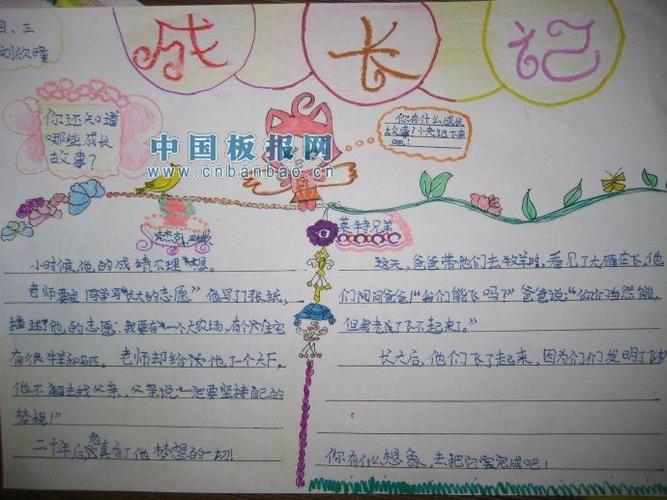 四、三
刘欣瞳
成长记
你还知道
哪些成长
故事？
你有什么成长
故事？小声把下来
吧！
中国板报网
www.cnbanbao.cn
莱特兄弟
小时候,他的成绩不理想。
老师要求同学写“长大的志愿”他写了7张纸,
描述他的志愿:我要有一个大农场,有个住宅
有很牛羊和马匹。老师却给他了一个大“F”,
他不解去找父亲,父亲说:“一定要坚持自己的
梦想!”
二十年后他真有了他梦想的一切!
这天,爸爸带他们去牧羊时,看见了大雁在飞,他
们问爸爸:“我们能飞吗？”爸爸说:“你们当然能,
但爸爸老了飞不起来了。”
长大后,他们飞了起来,因为他们发明了飞机
你有什么想象,去把它实完成吧!